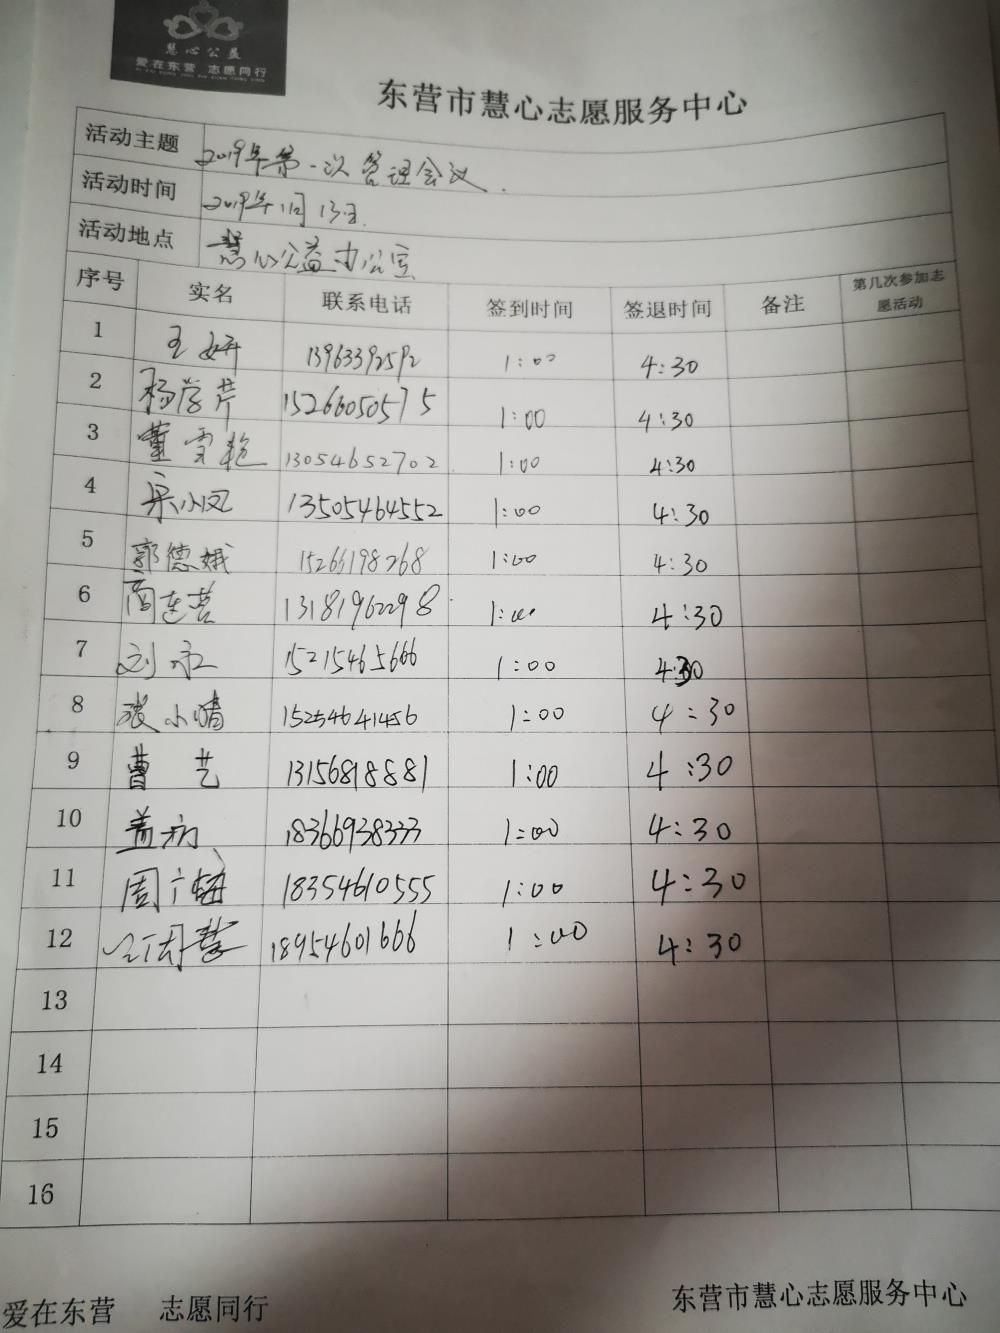 慧心公益
爱在东营 志愿同行
东营市慧心志愿服务中心
活动主题 2019年第一次管理会议.
活动时间 2019年1月13日.
活动地点 慧心公益办公室
序号 实名 联系电话 签到时间 签退时间 备注 第几次参加志愿活动
1 王妍 13963392592 1:00 4:30
2 杨学芹 15266050575 1:00 4:30
3 董雪艳 13054652702 1:00 4:30
4 宋小凤 13505464552 1:00 4:30
5 郭德娥 15266198768 1:00 4:30
6 商连营 13181962298 1:00 4:30
7 刘永 15215465666 1:00 4:30
8 张小晴 15254641456 1:00 4:30
9 曹艺 13156818881 1:00 4:30
10 盖 18366938333 1:00 4:30
11 周广 18354610555 1:00 4:30
12 18954601666 1:00 4:30
13
14
15
16
爱在东营 志愿同行 东营市慧心志愿服务中心